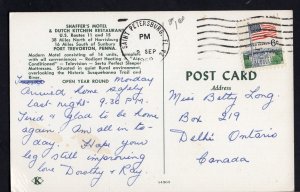 SHAFFER'S MOTEL
& DUTCH KITCHEN RESTAURANT
U.S. Routes 11 and 15
38 Miles North of Harrisburg
16 Miles South of Sunbury
PORT TREVORTON, PENNA.
Modern Motel consisting of 16 units, with
Radiant Heating - Air
Conditioned - Television - Santa Perfect Sleeper
Mattresses. Located in quiet Rural environment
overlooking the Historic Susquehanna Trail and
River.
OPEN YEAR ROUND
Monday
Arrived home safely
last night 9:30 P.M.
Tired & Glad to be home
again. Am all in
to-day. Hope your
leg still improving
love Dorothy + Ray
SAINT PETERSBURG, FL
PM
SEP
6¢
POST CARD
Address
Miss Betty Long
Box 219
Delhi Ontario
Canada